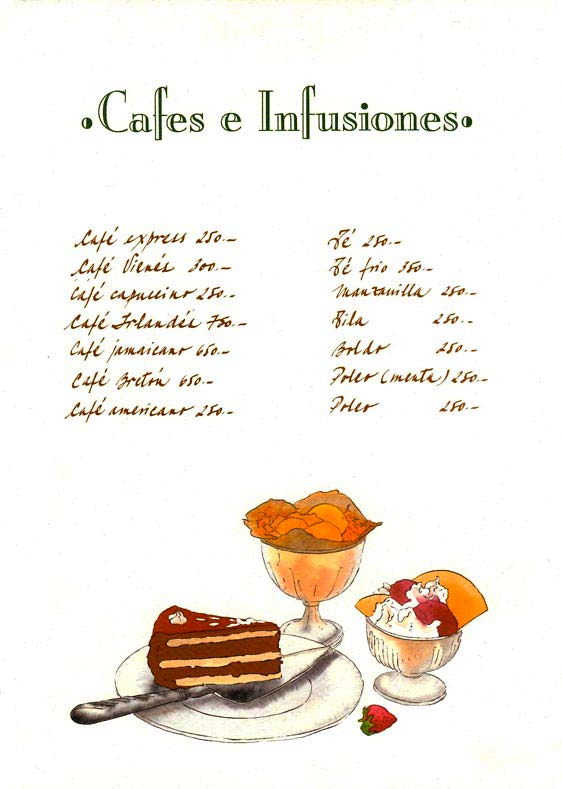 •Cafes e Infusiones•
Café express 250.–
Café Vienés 300.–
Café capuccino 250.–
Café Irlandés 750.–
Café jamaicano 650.–
Café Bretón 650.–
Café americano 250.–
Té 250.–
Té frio 350.–
Manzanilla 250.–
Tila 250.–
Boldo 250.–
Poleo (menta) 250.–
Poleo 250.–